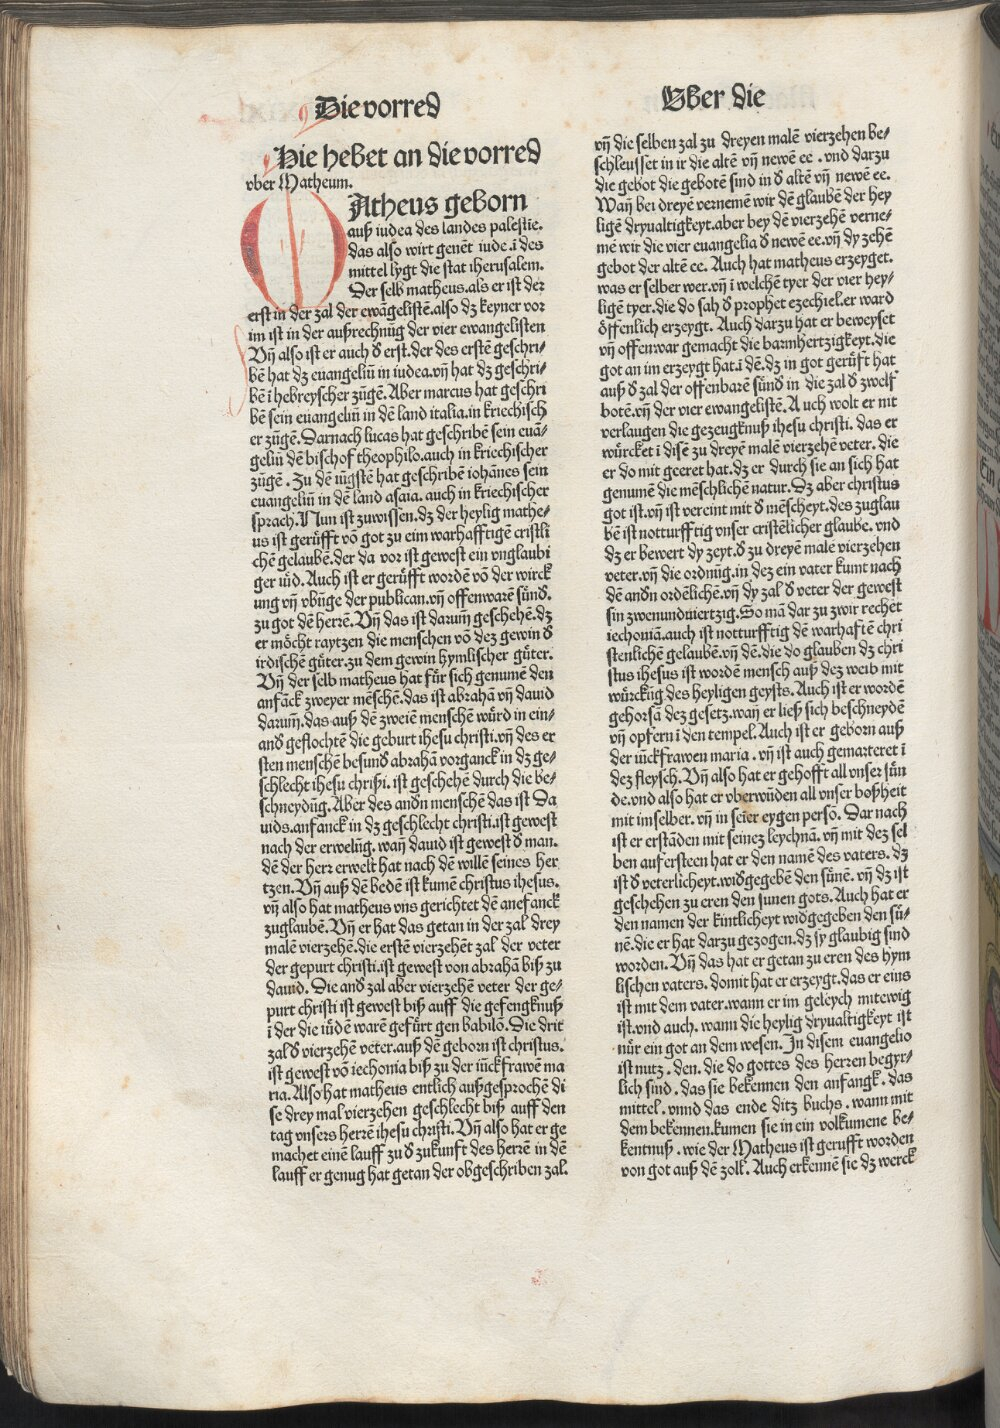 Die vorred
Uber die
Hie hebet an die vorred
vber Matheum.
MAtheus geborn
auß iudea des landes palestīe.
das also wirt genēt iude.ī des
mittel lygt die stat iherusalem.
Der selb matheus.als er ist der
erst in der zal der ewāgelistē.also dz keyner vor
im ist in der außrechnūg der vier ewangelisten
Vn̄ also ist er auch d̛ erst.der des erstē geschri⸗
bē hat dz euangeliū in iudea.vn̄ hat dz geschri⸗
bē ī hebreyscher zūgē. Aber marcus hat geschri
bē sein euangeliū in dē land italia.in kriechisch
er zūgē. Darnach lucas hat geschribē sein euā⸗
geliū dē bischof theophilo.auch in kriechischer
zūgē. Zu dē iūgstē hat geschribē iohānes sein
euangeliū in dē land asaia. auch in kriechischer
sprach. Nun ist zuwissen.dz der heylig mathe⸗
us ist gerůfft vō got zu eim warhafftigē cristli
chē gelaubē.der da vor ist gewest ein vnglaubi
ger iůd. Auch ist er gerůfft wordē vō der wirck
ung vn̄ vbūge der publican.vn̄ offenwarē sůnd.
zu got dē herrē. Vn̄ das ist darum̄ geschehē.dz
er möcht raytzen die menschen vō dez gewin d̛
irdischē gůter.zu dem gewin hymlischer gůter.
Vn̄ der selb matheus hat fůr sich genumē den
anfāck zweyer mēschē.das ist abrahā vn̄ dauid
darum̄.das auß dē zweiē menschē wůrd in ein⸗
and̛ geflochtē die geburt ihesu christi.vn̄ des er
sten menschē besund̛ abrahā vorganck in dz ge⸗
schlecht ihesu christi. ist geschehē durch die be⸗
schneydūg. Aber des andn̄ menschē das ist Da
uids.anfanck in dz geschlecht christi.ist gewest
nach der erwelūg. wan̄ dauid ist gewest d̛ man.
dē der herr erwelt hat nach dē willē seines her
tzen. Vn̄ auß dē bedē ist kumē christus ihesus.
vn̄ also hat matheus vns gerichtet dē anefanck
zuglaubē. Vn̄ er hat das getan in der zal drey
malē vierzehē.die erstē vierzehēt zal der veter
der gepurt christi.ist gewest von abrahā biß zu
dauid. Die and̛ zal aber vierzehē veter der ge⸗
purt christi ist gewest biß auff die gefengknuß
ī der die iůdē warē gefůrt gen babilō. Die drit
zal d̛ vierzehē veter.auß dē geborn ist christus.
ist gewest vō iechonia biß zu der iūckfrawē ma
ria. Also hat matheus entlich außgesprochē di
se drey mal vierzehen geschlecht biß auff den
tag vnsers herrē ihesu christi. Vn̄ also hat er ge
machet einē lauff zu d̛ zukunft des herrē in dē
lauff er genug hat getan der obgeschriben zal.
vn̄ die selben zal zu dreyen malē vierzehen be⸗
schleusset in ir die altē vn̄ newē ee . vnd darzu
die gebot die gebotē sind in d̛ altē vn̄ newē ee.
Wan̄ bei dreyē vernemē wir dē glaubē der hey
ligē dryualtigkeyt.aber bey dē vierzehē verne⸗
mē wir die vier euangelia d̛ newē ee.vn̄ dy zehē
gebot der altē ee. Auch hat matheus erzeyget.
was er selber wer.vn̄ ī welchē tyer der vier hey⸗
ligē tyer.die do sah d̛ prophet ezechiel.er ward
öffenlich erzeygt. Auch darzu hat er beweyset
vn̄ offenwar gemacht die barmhertzigkeyt.die
got an im erzeygt hat.ī dē.dz in got gerůfft hat
auß d̛ zal der offenbarē sůnd̛ in die zal d̛ zwelf
botē.vn̄ der vier ewangelistē. Auch wolt er nit
verlaugen die gezeugknuß ihesu christi. das er
wůrcket ī disē zu dreyē malē vierzehē veter. die
er do mit geeret hat.dz er durch sie an sich hat
genumē die mēschlichē natur. Dz aber christus
got ist.vn̄ ist vereint mit d̛ mēscheyt.des zuglau
bē ist notturfftig vnser cristēlicher glaube. vnd
dz er bewert dy zeyt.d̛ zu dreyē male vierzehen
veter.vn̄ die ordnūg.in dez ein vater kumt nach
dē andn̄ ordēlichē.vn̄ dy zal d̛ veter der gewest
sin zwenundviertzig. So mā dar zu zwir rechēt
iechoniā.auch ist notturfftig dē warhafiē chri
stenlichē gelaubē.vn̄ dē.die do glauben dz chri
stus ihesus ist wordē mensch auß dez weib mit
wůrckūg des heyligen geysts. Auch ist er wordē
gehorsā dez gesetz.wan̄ er ließ sich beschneydē
vn̄ opfern ī den tempel. Auch ist er geborn auß
der iūckfrawen maria . vn̄ ist auch gemarteret ī
dez fleysch. Vn̄ also hat er gehofft all vnser sůn
de.vnd also hat er vberwūden all vnser boßheit
mit in selber. vn̄ in seier eygen persō. Dar nach
ist er erstāden mit seinez leychnā. vn̄ mit dez sel
ben aufersteen hat er den namē des vaters. dz
ist d̛ veterlicheyt.wid̛gegebē den sůnē. vn̄ dz ist
geschehen zu eren den sunen gots. Auch hat er
den namen der kintlicheyt wid̛gegeben den sů⸗
nē.die er hat darzu gezogen.dz sy glaubig sind
worden. Vn̄ das hat er getan zu eren des hym
lischen vaters. domit hat er erzeygt.das er eins
ist mit dem vater.wann er im geleych mitewig
ist.vnd auch. wann die heylig dryualtigkeyt ist
nůr ein got an dem wesen. In disem euangelio
ist nutz . den. die do gottes des herren begyr⸗
lich sind . das sie bekennen den anfangk . das
mittel . vnnd das ende ditz buchs . wann mit
dem bekennen.kumen sie in ein volkumene be⸗
kentnuß . wie der Matheus ist gerufft worden
von got auß dē zolk. Auch erkennē sie dz werck